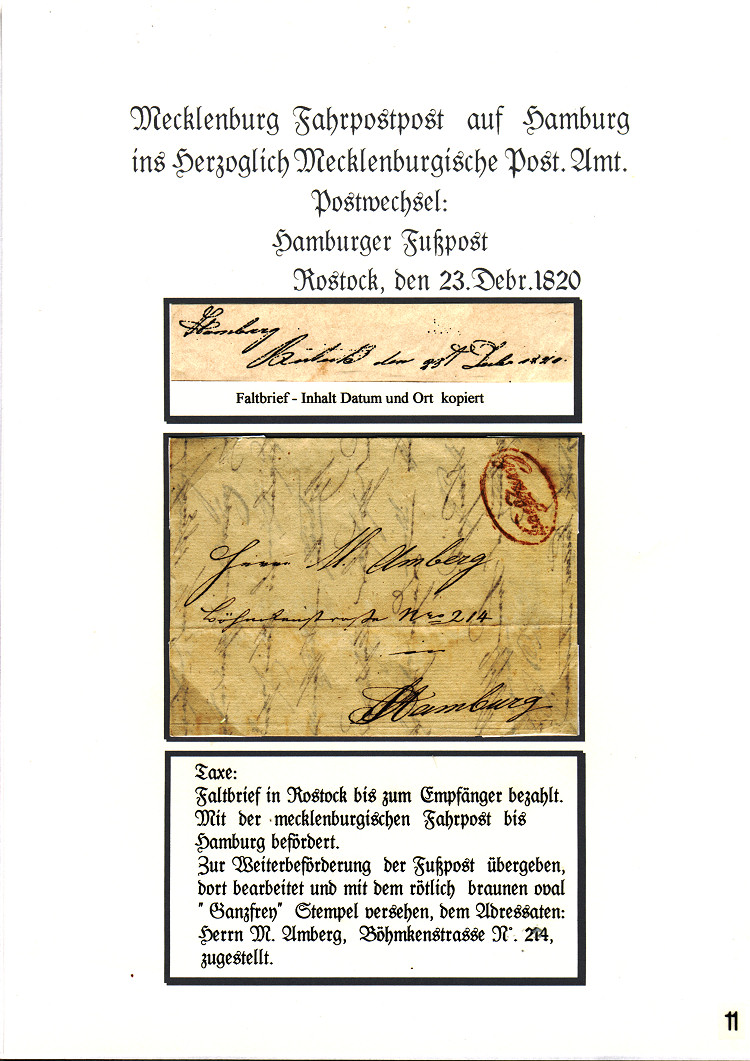 Mecklenburg Fahrpostpost auf Hamburg
ins Herzoglich Mecklenburgische Post. Amt.
Postwechsel:
Hamburger Fußpost
Rostock, den 23. Debr. 1820
Hamburg
Rostock den 23t Debr 1820.
Faltbrief - Inhalt Datum und Ort kopiert
Ganzfrey
Herrn M. Amberg
Böhmkenstraße Nro 214
in
Hamburg
Taxe:
Faltbrief in Rostock bis zum Empfänger bezahlt.
Mit der mecklenburgischen Fahrpost bis
Hamburg befördert.
Zur Weiterbeförderung der Fußpost übergeben,
dort bearbeitet und mit dem rötlich braunen oval
" Ganzfrey" Stempel versehen, dem Adressaten:
Herrn M. Amberg, Böhmkenstrasse N°. 214,
zugestellt.
11